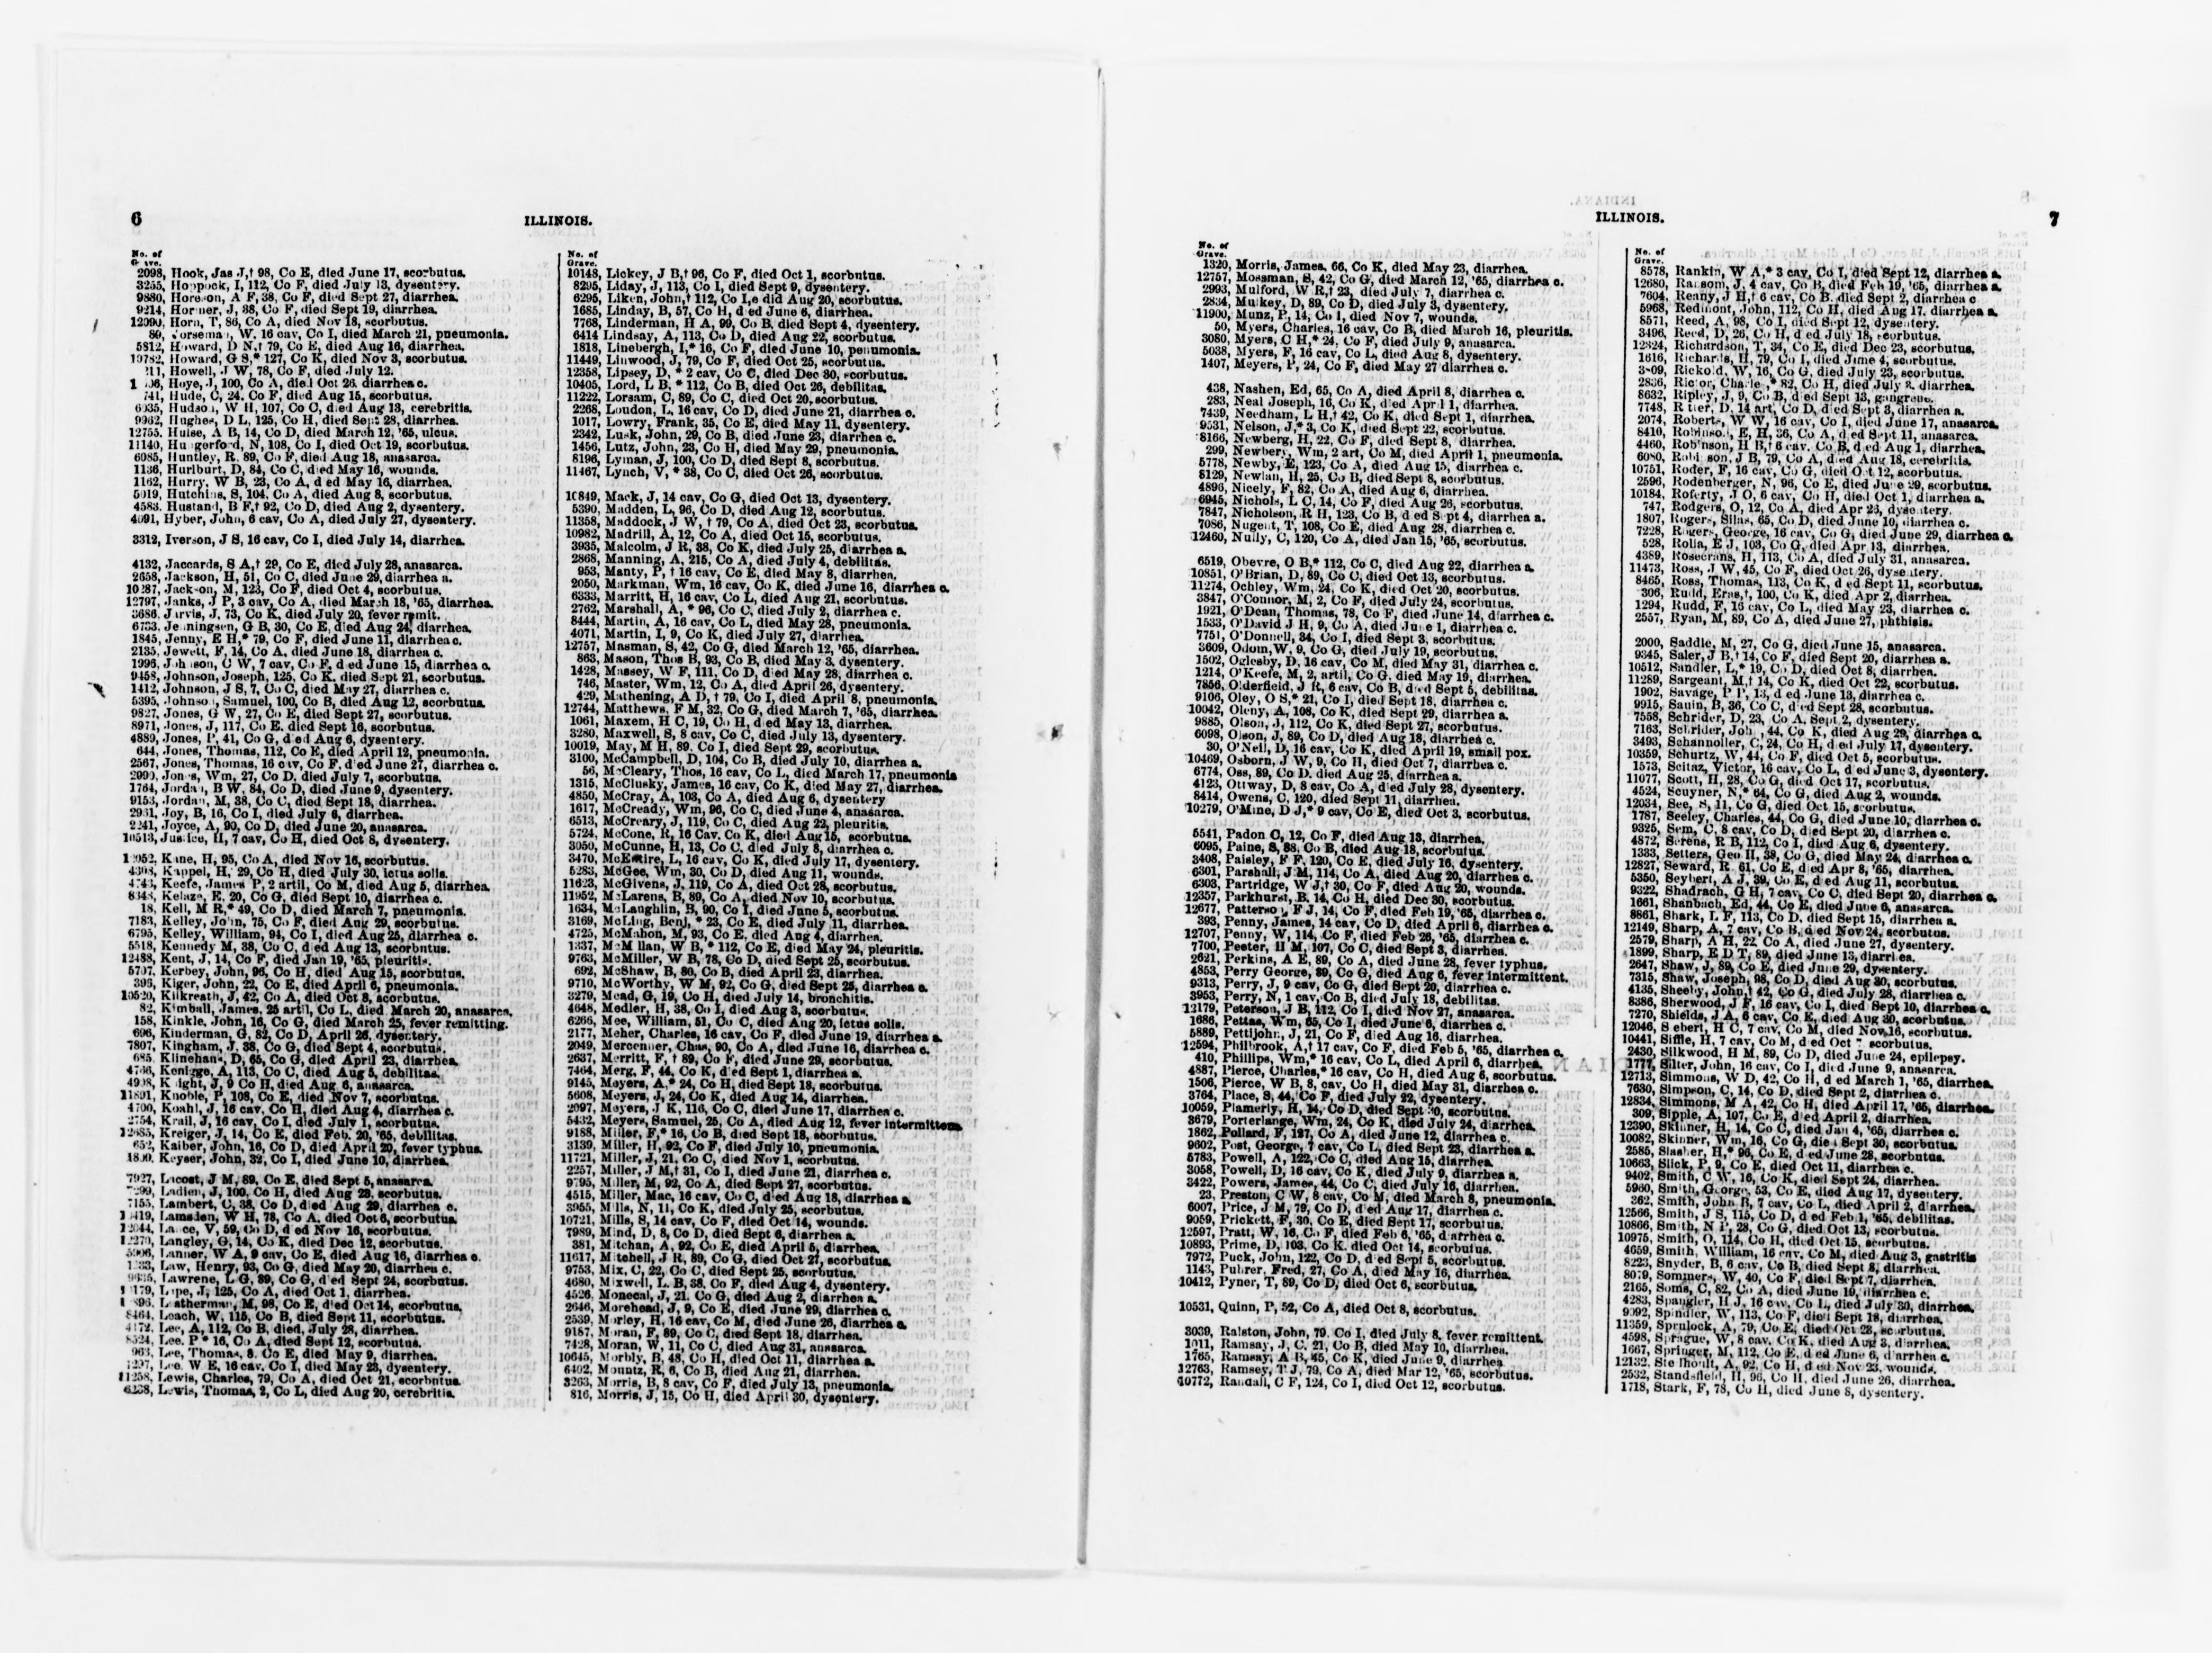 6
ILLINOIS.
No. of
Grave.
2098, Hook, Jas J,† 98, Co E, died June 17, scorbutus.
3255, Hoppock, I, 112, Co F, died July 13, dysentery.
9880, Horeson, A F, 38, Co F, died Sept 27, diarrhea.
9214, Horner, J, 38, Co F, died Sept 19, diarrhea.
12090, Horn, T, 86, Co A, died Nov 18, scorbutus.
W. 16 cav, Co I, died March 21, pneumonia.
5812, Howard, D N,† 79, Co E, died Aug 16, diarrhea.
10782, Howard, G S,* 127, Co K, died Nov 3, scorbutus.
Howell, J W, 78, Co F, died July 12.
Hoye, J, 100, Co A, died Oct 26, diarrhea c.
Hude, C, 24, Co F, died Aug 15, scorbutus.
Hudson, W H, 107, Co C, died Aug 13, cerebritis.
Hughes, D L, 125, Co H, died Sept 28, diarrhea.
12755, Hulse, A B, 14, Co D, died March 12, '65, ulcus.
11140, Hungerford, N, 108, Co I, died Oct 19, scorbutus.
6085, Huntley, R. 89, Co F, died Aug 18, anasarca.
1136, Hurlburt, D, 84, Co C, died May 16, wounds.
1162, Hurry, W B, 23, Co A, died May 16, diarrhea.
Hutchins, S, 104, Co A, died Aug 8, scorbutus.
4583, Hustand, B F,† 92, Co D, died Aug 2, dysentery.
4091, Hyber, John, 6 cav, Co A, died July 27, dysentery.
3312, Iverson, J S, 16 cav, Co I, died July 14, diarrhea.
4132, Jaccards, S A,† 29, Co E, died July 28, anasarca.
2658, Jackson, H, 51, Co C, died June 29, diarrhea a.
Jackson, M, 123, Co F, died Oct 4, scorbutus.
12797, Janks, J P, 3 cav, Co A, died March 18, '65, diarrhea.
3686, Jarvis, J. 73, Co K, died July 20, fever remit.
Jenningsen, G B, 30, Co E, died Aug 24, diarrhea.
1845, Jenny, E H,* 79, Co F, died June 11, diarrhea c.
2135, Jewett, F, 14, Co A, died June 18, diarrhea c.
1996, Johnson, C W, 7 cav, Co F, died June 15, diarrhea c.
9458, Johnson, Joseph, 125, Co K. died Sept 21, scorbutus.
1412, Johnson, J S, 7, Co C, died May 27, diarrhea c.
5395, Johnson, Samuel, 100, Co B, died Aug 12, scorbutus.
9827, Jones, G W, 27, Co E, died Sept 27, scorbutus.
8971, Jones, J, 117, Co E, died Sept 16, scorbutus.
4889, Jones, P, 41, Co G, died Aug 6, dysentery.
644, Jones, Thomas, 112, Co E, died April 12, pneumonia.
2567, Jones, Thomas, 16 cav, Co F, died June 27, diarrhea c.
2990, Jones, Wm, 27, Co D, died July 7, scorbutus.
1764, Jordan, B W, 84, Co D, died June 9, dysentery.
9153, Jordan, M, 38, Co C, died Sept 18, diarrhea.
2931, Joy, B, 16, Co I, died July 6, diarrhea.
2241, Joyce, A, 90, Co D, died June 20, anasarca.
10513, Justice, H, 7 cav, Co H, died Oct 8, dysentery.
Kane, H, 95, Co A, died Nov 16, scorbutus.
Kappel, H, 29, Co H, died July 30, ictus solis.
Keefe, James P, 2 artil, Co M, died Aug 5, diarrhea.
E, 20, Co G, died Sept 10, diarrhea c.
18, Kell, M R,* 49, Co D, died March 7, pneumonia.
7183, Kelley, John, 75, Co F, died Aug 29, scorbutus.
6795, Kelley, William, 94, Co I, died Aug 25, diarrhea c.
5518, Kennedy M, 38, Co C, died Aug 13, scorbutus.
12488, Kent, J, 14, Co F, died Jan 19, '65, pleuritis.
5707, Kerbey, John, 96, Co H, died Aug 15, scorbutus.
396, Kiger, John, 22, Co E, died April 6, pneumonia.
10520, Kilkreath, J, 42, Co A, died Oct 8, scorbutus.
82, Kimball, James, 25 artil, Co L, died March 20, anasarca.
158, Kinkle, John, 16, Co G, died March 25, fever remitting.
606, Kinderman, G, 82, Co D, April 26, dysentery.
7807, Kingham, J, 38, Co G, died Sept 4, scorbutus.
685, Klinehans, D, 65, Co G, died April 23, diarrhea.
Kenigge, A, 113, Co C, died Aug 5, debilitas.
Knight, J, 9 Co H, died Aug 6, anasarca.
11891, Knoble, P, 108, Co E, died Nov 7, scorbutus.
4700, Koahl, J, 16 cav, Co H, died Aug 4, diarrhea c.
2754, Krail, J, 16 cav, Co I, died July 1, scorbutus.
12685, Kreiger, J, 14, Co E, died Feb. 20, '65, debilitas.
652, Kaiber, John, 16, Co D, died April 20, fever typhus.
Keyser, John, 32, Co I, died June 10, diarrhea.
7927, Lacost, J M, 89, Co E, died Sept 5, anasarca.
Ladien, J, 100, Co H, died Aug 28, scorbutus.
7155, Lambert, C, 38, Co D, died Aug 29, diarrhea c.
Lamsden, W H, 78, Co A. died Oct 6, scorbutus.
12044, Lance, V, 59, Co D, died Nov 16, scorbutus.
12270, Langley, G, 14, Co K, died Dec 12, scorbutus.
5906, Lanner, W A, 9 cav, Co E, died Aug 16, diarrhea c.
Law, Henry, 93, Co G, died May 20, diarrhea c.
9635, Lawrene, L G, 89, Co G, died Sept 24, scorbutus.
Lepe, J, 125, Co A, died Oct 1, diarrhea.
Leatherman, M, 98, Co E, died Oct 14, scorbutus.
8464, Leach, W, 115, Co B, died Sept 11, scorbutus.
4172, Lee, A, 112, Co B, died, July 28, diarrhea.
8524, Lee, P * 16, Co A, died Sept 12, scorbutus.
963, Lee, Thomas, 8, Co E, died May 9, diarrhea.
1297, Lee, W E, 16 cav. Co I, died May 23, dysentery.
11258, Lewis, Charles, 79, Co A, died Oct 21, scorbutus.
6238, Lewis, Thomas, 2, Co L, died Aug 20, cerebritis.
No. of
Grave.
10148, Lickey, J B,† 96, Co F, died Oct 1, scorbutus.
8295, Liday, J, 113, Co I, died Sept 9, dysentery.
6295, Liken, John,† 112, Co I,e did Aug 20, scorbutus.
1685, Linday, B, 57, Co H, died June 6, diarrhea.
7768, Linderman, H A, 99, Co B, died Sept 4, dysentery.
6414 Lindsay, A, 113, Co D, died Aug 22, scorbutus.
1818, Linebergh, I,* 16, Co F, died June 10, penumonia.
11449, Linwood, J, 79, Co F, died Oct 25, scorbutus.
12358, Lipsey, D, * 2 cav, Co C, died Dec 30, scorbutus.
10405, Lord, L B, * 112, Co B, died Oct 26, debilitas.
11222, Lorsam, C, 89, Co C, died Oct 20, scorbutus.
2268, Loudon, L, 16 cav, Co D, died June 21, diarrhea c.
1017, Lowry, Frank, 35, Co E, died May 11, dysentery.
2342, Lusk, John, 29, Co B, died June 23, diarrhea c.
1456, Lutz, John, 23, Co H, died May 29, pneumonia.
8196, Lyman, J, 100, Co D, died Sept 8, scorbutus.
11467, Lynch, V, * 38, Co C, died Oct 26, scorbutus.
10849, Mack, J, 14 cav, Co G, died Oct 13, dysentery.
5390, Madden, L, 96, Co D, died Aug 12, scorbutus.
11358, Maddock, J W, † 79, Co A, died Oct 23, scorbutus.
10982, Madrill, A, 12, Co A, died Oct 15, scorbutus.
3935, Malcolm, J R, 38, Co K, died July 25, diarrhea a.
2868, Manning, A, 215, Co A, died July 4, debilitas.
953, Manty, P, † 16 cav, Co E, died May 8, diarrhea.
2050, Markman, Wm, 16 cav, Co K, died June 16, diarrhea c.
6333, Marritt, H, 16 cav, Co L, died Aug 21, scorbutus.
2762, Marshall, A, * 96, Co C, died July 2, diarrhea c.
8444, Martin, A, 16 cav, Co L, died May 28, pneumonia.
4071, Martin, I, 9, Co K, died July 27, diarrhea.
12757, Masman, S, 42, Co G, died March 12, '65, diarrhea.
863, Mason, Thos B, 93, Co B, died May 3, dysentery.
1428, Massey, W F, 111, Co D, died May 28, diarrhea c.
746, Master, Wm, 12, Co A, died April 26, dysentery.
429, Mathening, A D, † 79, Co I, died April 8, pneumonia.
12744, Matthews, F M, 32, Co G, died March 7, '65, diarrhea.
1061, Maxem, H C, 19, Co H, died May 13, diarrhea.
3280, Maxwell, S, 8 cav, Co C, died July 13, dysentery.
10019, May, M H, 89, Co I, died Sept 29, scorbutus.
3100, McCampbell, D, 104, Co B, died July 10, diarrhea a.
56, McCleary, Thos, 16 cav, Co L, died March 17, pneumonia
1315, McClusky, James, 16 cav, Co K, died May 27, diarrhea.
4850, McCray, A, 103, Co A, died Aug 6, dysentery
1617, McCready, Wm, 96, Co C, died June 4, anasarca.
6513, McCreary, J, 119, Co C, died Aug 22, pleuritis.
5724, McCone, R, 16 Cav, Co K, died Aug 15, scorbutus.
3050, McCunne, H, 13, Co C, died July 8, diarrhea c.
3470, L, 16 cav, Co K, died July 17, dysentery.
5283, McGee, Wm, 30, Co D, died Aug 11, wounds.
11623, McGivens, J, 119, Co A, died Oct 28, scorbutus.
11952, McLarens, B, 89, Co A, died Nov 10, scorbutus.
1634, McLaughlin, B, 90, Co I, died June 5, scorbutus.
3169, McLing, Benj, * 23, Co E, died July 11, diarrhea.
4725, McMahon, M, 93, Co E, died Aug 4, diarrhea.
1337, McMllan, W B, * 112, Co E, died May 24, pleuritis.
9763, McMiller, W B, 78, Co D, died Sept 25, scorbutus.
692, McShaw, B, 80, Co B, died April 23, diarrhea.
9710, McWorthy, W M, 92, Co G, died Sept 25, diarrhea c.
3279, Mead, G, 19, Co H, died July 14, bronchitis.
4648, Medler, H, 38, Co I, died Aug 3, scorbutus.
6266, Mee, William, 51, Co C, died Aug 20, ictus solis.
2177, Meher, Charles, 16 cav, Co F, died June 19, diarrhea a.
2049, Mercenner, Chas, 90, Co A, died June 16, diarrhea c.
2637, Merritt, F, † 89, Co F, died June 29, scorbutus.
7464, Merg, F, 44, Co K, died Sept 1, diarrhea a.
9145, Meyers, A,* 24, Co H, died Sept 18, scorbutus.
5608, Meyers, J, 24, Co K, died Aug 14, diarrhea.
2097, Meyers, J K, 116, Co C, died June 17, diarrhea c.
5432, Meyers, Samuel, 25, Co A, died Aug 12, fever intermittens
9188, Miller, F,* 16, Co B, died Sept 18, scorbutus.
3139, Miller, H, 92, Co F, died July 10, pneumonia.
11721, Miller, J, 21, Co C, died Nov 1, scorbutus.
2257, Miller, J M,† 31, Co I, died June 21, diarrhea c.
9795, Miller, M, 92, Co A, died Sept 27, scorbutus.
4515, Miller, Mac, 16 cav, Co C, died Aug 18, diarrhea a.
3955, Mills, N, 11, Co K, died July 25, scorbutus.
10721, Mills, S, 14 cav, Co F, died Oct 14, wounds.
7989, Mind, D, 8, Co D, died Sept 6, diarrhea a.
381, Mitchan, A, 92, Co E, died April 5, diarrhea.
11617, Mitchell, J R, 89, Co G, died Oct 27, scorbutus.
9753, Mix, C, 22, Co C, died Sept 25, scorbutus.
4680, Mixwell, L. B, 38, Co F, died Aug 4, dysentery.
4526, Monecal, J, 21, Co G, died Aug 2, diarrhea a.
2646, Morehead, J, 9, Co E, died June 29, diarrhea c.
2539, Morley, H, 16 cav, Co M, died June 26, diarrhea a.
9187, Moran, F, 89, Co C, died Sept 18, diarrhea.
7428, Moran, W, 11, Co C, died Aug 31, anasarca.
10645, Morbly, B, 48, Co H, died Oct 11, diarrhea a.
6402, Mountz, R, 6, Co B, died Aug 21, diarrhea.
3263, Morris, B, 8 cav, Co F, died July 13, pneumonia.
816, Morris, J, 15, Co H, died April 30, dysentery.
ILLINOIS.
7
No. of
Grave.
1320, Morris, James, 66, Co K, died May 23, diarrhea.
12757, Mossman, S, 42, Co G, died March 12, '65, diarrhea c.
2993, Mulford, W R,† 23, died July 7, diarrhea c.
2834, Mulkey, D, 89, Co D, died July 3, dysentery.
11900, Munz, P, 14, Co I, died Nov 7, wounds.
50, Myers, Charles, 16 cav, Co B, died March 16, pleuritis.
3080, Myers, C H,* 24, Co F, died July 9, anasarca.
5038, Myers, F, 16 cav, Co L, died Aug 8, dysentery.
1407, Meyers, P, 24, Co F, died May 27 diarrhea c.
438, Nashen, Ed, 65, Co A, died April 8, diarrhea c.
283, Neal Joseph, 16, Co K, died April 1, diarrhea.
7439, Needham, L H,† 42, Co K, died Sept 1, diarrhea.
9531, Nelson, J,* 3, Co K, died Sept 22, scorbutus.
8166, Newberg, H, 22, Co F, died Sept 8, diarrhea.
299, Newbery, Wm, 2 art, Co M, died April 1, pneumonia.
5778, Newby, E, 123, Co A, died Aug 15, diarrhea c.
8129, Newlan, H, 25, Co B, died Sept 8, scorbutus.
4896, Nicely, F, 82, Co A, died Aug 6, diarrhea.
6945, Nichols, L C, 14, Co F, died Aug 26, scorbutus.
7847, Nicholson, R H, 123, Co B, died Sept 4, diarrhea a.
7086, Nugent, T, 108, Co E, died Aug 28, diarrhea c.
12460, Nully, C, 120, Co A, died Jan 15, '65, scorbutus.
6519, Obevre, O B,* 112, Co C, died Aug 22, diarrhea a.
10851, O'Brian, D, 89, Co C, died Oct 13, scorbutus.
11274, Ochley, Wm, 24, Co K, died Oct 20, scorbutus.
3847, O'Connor, M, 2, Co F, died July 24, scorbutus.
1921, O'Dean, Thomas, 78, Co F, died June 14, diarrhea c.
1533, O'David J H, 9, Co A, died June 1, diarrhea c.
7751, O'Donnell, 34, Co I, died Sept 3, scorbutus.
3609, Odom, W, 9, Co G, died July 19, scorbutus.
1502, Oglesby, D, 16 cav, Co M, died May 31, diarrhea c.
1214, O'Keefe, M, 2, artil, Co G, died May 19, diarrhea.
7856, Olderfield, J R, 6 cav, Co B, died Sept 5, debilitas.
9106, Oley, O S,* 21, Co I, died Sept 18, diarrhea c.
10042, Oleny, A, 108, Co K, died Sept 29, diarrhea a.
9885, Olson, J, 112, Co K, died Sept 27, scorbutus.
6098, Olson, J, 89, Co D, died Aug 18, diarrhea c.
30, O'Neil, D, 16 cav, Co K, died April 19, small pox.
10469, Osborn, J W, 9, Co H, died Oct 7, diarrhea c.
6774, Oss, 89, Co D, died Aug 25, diarrhea a.
4123, Ottway, D, 8 cav, Co A, died July 28, dysentery.
8414, Owens, C, 120, died Sept 11, diarrhea.
10279, O'Mine, D J,* 9 cav, Co E, died Oct 3, scorbutus.
5541, Padon C, 12, Co F, died Aug 13, diarrhea.
6095, Paine, S, 88, Co B, died Aug 18, scorbutus.
3408, Paisley, F F, 120, Co E, died July 16, dysentery.
6301, Parshall, J M, 114, Co A, died Aug 20, diarrhea c.
6303, Partridge, W J,† 30, Co F, died Aug 20, wounds.
12357, Parkhurst, B, 14, Co H, died Dec 30, scorbutus.
12677, Patterson, F J, 14, Co F, died Feb 19, '65, diarrhea c.
393, Penny, James, 14 cav, Co D, died April 6, diarrhea c.
12707, Penny, W, 114, Co F, died Feb 26, '65, diarrhea c.
7700, Peeter, H M, 107, Co C, died Sept 3, diarrhea.
2621, Perkins, A E, 89, Co A, died June 28, fever typhus.
4853, Perry George, 89, Co G, died Aug 6, fever intermittent.
9313, Perry, J, 9 cav, Co G, died Sept 20, diarrhea c.
3953, Perry, N, 1 cav, Co B, died July 18, debilitas.
12179, Peterson, J B, 112, Co I, died Nov 27, anasarca.
1686, Pettas, Wm, 65, Co I, died June 6, diarrhea c.
5889, Pettijohn, J, 21, Co F, died Aug 16, diarrhea.
12594, Philbrook, A,† 17 cav, Co F, died Feb 5, '65, diarrhea c.
410, Phillips, Wm,* 16 cav, Co L, died April 6, diarrhea.
4887, Pierce, Charles,* 16 cav, Co H, died Aug 6, scorbutus.
1506, Pierce, W B, 8, cav, Co H, died May 31, diarrhea c.
3764, Place, S, 44, Co F, died July 22, dysentery.
10059, Plamerly, H, 14, Co D, died Sept 30, scorbutus.
3679, Porterlange, Wm, 24, Co K, died July 24, diarrhea.
1862, Pollard, F, 127, Co A, died June 12, diarrhea c.
9602, Post, George, 7 cav, Co L, died Sept 23, diarrhea a.
5783, Powell, A, 122, Co C, died Aug 15, diarrhea.
3058, Powell, D, 16 cav, Co K, died July 9, diarrhea a.
3422, Powers, James, 44, Co C, died July 16, diarrhea.
23, Preston, C W, 8 cav, Co M, died March 8, pneumonia.
6007, Price, J M, 79, Co D, died Aug 17, diarrhea c.
9059, Prickett, F, 30, Co E, died Sept 17, scorbutus.
12597, Pratt, W, 16, Co F, died Feb 6, '65, diarrhea c.
10893, Prime, D, 103, Co K, died Oct 14, scorbutus.
7972, Puck, John, 122, Co D, died Sept 5, scorbutus.
1143, Puhrer, Fred, 27, Co A, died May 16, diarrhea.
10412, Pyner, T, 89, Co D, died Oct 6, scorbutus.
10531, Quinn, P, 52, Co A, died Oct 8, scorbutus.
3039, Ralston, John, 79, Co I, died July 8, fever remittent.
1011, Ramsay, J, C, 21, Co B, died May 10, diarrhea.
1765, Ramsay, A B, 45, Co K, died June 9, diarrhea
12763, Ransom, T J, 79, Co A, died Mar 12, '65, scorbutus.
10772, Randall, C F, 124, Co I, died Oct 12, scorbutus.
No. of
Grave.
8578, Rankin, W A,* 3 cav, Co I, died Sept 12, diarrhea a.
12680, Ransom, J, 4 cav, Co B, died Feb 19, '65, diarrhea a.
7604, Reany, J H,† 6 cav, Co B, died Sept 2, diarrhea c
5968, Redmont, John, 112, Co H, died Aug 17, diarrhea a.
8571, Reed, A, 98, Co I, died Sept 12, dysentery.
3496, Reed, D, 26, Co H, died July 18, scorbutus.
12324, Richardson, T, 34, Co E, died Dec 23, scorbutus.
1616, Richards, H, 79, Co I, died June 4, scorbutus.
Rickold, W, 16, Co G, died July 23, scorbutus.
2836, 82, Co H, died July 3, diarrhea.
8632, Ripley, J, 9, Co B, died Sept 13, gangrene.
7748, Ritter, D, 14 art, Co D, died Sept 3, diarrhea a.
2074, Roberts, W W, 16 cav, Co I, died June 17, anasarca.
8410, Robinson, E, H, 36, Co A, died Sept 11, anasarca.
4460, Robinson, H B,† 6 cav, Co B, died Aug 1, diarrhea.
Robinson, J B, 79, Co A, died Aug 18, cerebritis.
10751, Roder, F, 16 cav, Co G, died Oct 12, scorbutus.
2596, Rodenberger, N, 96, Co E, died June 29, scorbutus.
10184, Roferty, J O, 6 cav, Co H, died Oct 1, diarrhea a.
747, Rodgers, O, 12, Co A, died Apr 26, dysentery.
1807, Rogers, Silas, 65, Co D, died June 10, diarrhea c.
7228, Rogers, George, 16 cav, Co G, died June 29, diarrhea c.
528, Rolla, E J, 103, Co G, died Apr 13, diarrhea.
4389, Rosecrans, H, 113, Co A, died July 31, anasarca.
11473, Ross, J W, 45, Co F, died Oct 26, dysentery.
8465, Ross, Thomas, 113, Co K, died Sept 11, scorbutus.
306, Rudd, Eras,†, 100, Co K, died Apr 2, diarrhea.
1294, Rudd, F, 16 cav, Co L, died May 23, diarrhea c.
2557, Ryan, M, 89, Co A, died June 27, phthisis.
2000, Saddle, M, 27, Co G, died June 15, anasarca.
9345, Saler, J B,† 14, Co F, died Sept 20, diarrhea a.
10512, Sandler, L,* 19, Co D, died Oct 8, diarrhea.
11289, Sargeant, M,† 14, Co K, died Oct 22, scorbutus.
1902, Savage, P P, 13, died June 13, diarrhea c.
9915, Sauin, B, 36, Co C, died Sept 28, scorbutus.
7558, Schrider, D, 23, Co A, Sept 2, dysentery.
7163, Schrider, John, 44, Co K, died Aug 29, diarrhea c.
3493, Schannoller, C, 24, Co H, died July 17, dysentery.
10359, Schurtz, W, 44, Co F, died Oct 5, scorbutus.
1573, Scitaz, Victor, 16 cav, Co L, died June 3, dysentery.
11077, Scott, H, 28, Co G, died Oct 17, scorbutus.
4524, Scuyner, N,* 64, Co G, died Aug 2, wounds.
12034, See, S, 11, Co G, died Oct 15, scorbutus.
1787, Seeley, Charles, 44, Co G, died June 10, diarrhea c.
9325, Sem, C, 8 cav, Co D, died Sept 20, diarrhea c.
4872, Serens, R B, 112, Co I, died Aug 6, dysentery.
1333, Setters, Geo H, 38, Co G, died May 24, diarrhea c.
12827, Seward, R. 61, Co E, died Apr 8, '65, diarrhea.
5350, Seybert, A J, 39, Co E, died Aug 11, scorbutus.
9322, Shadrach, G H, 7 cav, Co C, died Sept 20, diarrhea c.
1661, Shanbach, Ed, 44, Co E, died June 6, anasarca.
8861, Shark, L F, 113, Co D, died Sept 15, diarrhea a.
12149, Sharp, A, 7 cav, Co B, died Nov 24, scorbutus.
2579, Sharp, A H, 22, Co A, died June 27, dysentery.
1899, Sharp, E D T, 89, died June 13, diarrhea.
2647, Shaw, J, 89, Co E, died June 29, dysentery.
7315, Shaw, Joseph, 98, Co D, died Aug 30, scorbutus.
4135, Sheeby, John,† 42, Co G, died July 28, diarrhea c.
8386, Sherwood, J F, 16 cav, Co I, died Sept 10, diarrhea c.
7270, Shields, J A, 6 cav, Co E, died Aug 30, scorbutus.
12046, Siebert, H C, 7 cav, Co M, died Nov 16, scorbutus.
10441, Siffle, H, 7 cav, Co M, died Oct 7 scorbutus.
2430, Silkwood, H M, 89, Co D, died June 24, epilepsy.
1777, Silter, John, 16 cav, Co I, died June 9, anasarca.
12713, Simmons, W D, 42, Co H, died March 1, '65, diarrhea.
7630, Simpson, C, 14, Co D, died Sept 2, diarrhea c.
12834, Simmons, M A, 42, Co H, died April 17, '65, diarrhea.
309, Sipple, A, 107, Co B, died April 2, diarrhea.
12390, Skinner, H, 14, Co C, died Jan 4, '65, diarrhea c.
10082, Skinner, Wm, 16, Co G, died Sept 30, scorbutus.
2585, Slasher, H,* 96, Co E, died June 28, scorbutus.
10663, Slick, P, 9, Co E, died Oct 11, diarrhea c.
9402, Smith, C W, 16, Co K, died Sept 24, diarrhea.
5960, Smith, George, 53, Co E, died Aug 17, dysentery.
362, Smith, John B, 7 cav, Co L, died April 2, diarrhea.
12566, Smith, J S, 115, Co D, died Feb 1, '65, debilitas.
10866, Smith, N P, 28, Co G, died Oct 13, scorbutus.
10975, Smith, O, 114, Co H, died Oct 15, scorbutus.
4659, Smith, William, 16 cav, Co M, died Aug 3, gastritis
8223, Snyder, B, 6 cav, Co B, died Sept 8, diarrhea.
8079, Sommers, W, 40, Co F, died Sept 7, diarrhea.
2165, Soms, C, 82, Co A, died June 19, diarrhea c.
4283, Spangler, H J, 16 cav, Co L, died July 30, diarrhea.
9092, Spindler, W, 113, Co F, died Sept 18, diarrhea.
11359, Sprulock, A, 79, Co E, died Oct 23, scorbutus.
4598, Sprague, W, 8 cav, Co K, died Aug 3, diarrhea.
1667, Springer, M, 112, Co E, died June 6, diarrhea c.
12132, A, 92, Co H, died Nov 23, wounds.
2532, Standsfield, H, 96, Co H, died June 26, diarrhea.
1718, Stark, F, 78, Co H, died June 8, dysentery.